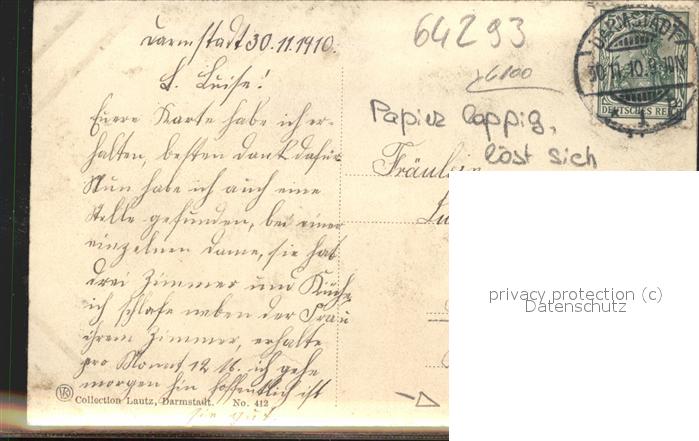 Darmstadt 30.11.1910.
L. Luise!
Euere Karte habe ich er-
halten, besten dank dafür
Nun habe ich auch eine
Stelle gefunden, bei einer
einzelnen dame, sie hat
drei Zimmer und Küche
ich schlafe neben der Frau
ihrem Zimmer, erhalte
pro Monat 12 M. ich gehe
morgen hin hoffentlich ist
sie gut.
Collection Lautz, Darmstadt. No. 412
64293
Papier lappig,
löst sich
Fräulein
Lu
DARMSTADT
30.11.10.9-10N
* 1
DEUTSCHES REICH
privacy protection (c)
Datenschutz